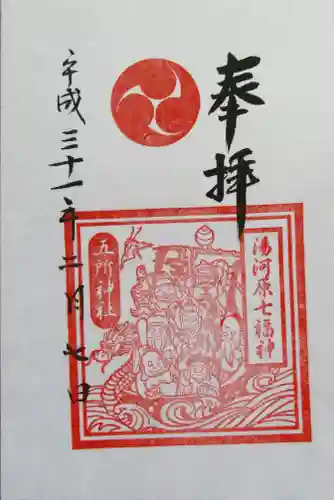 奉拝
湯河原七福神
五所神社
平成三十一年二月七日